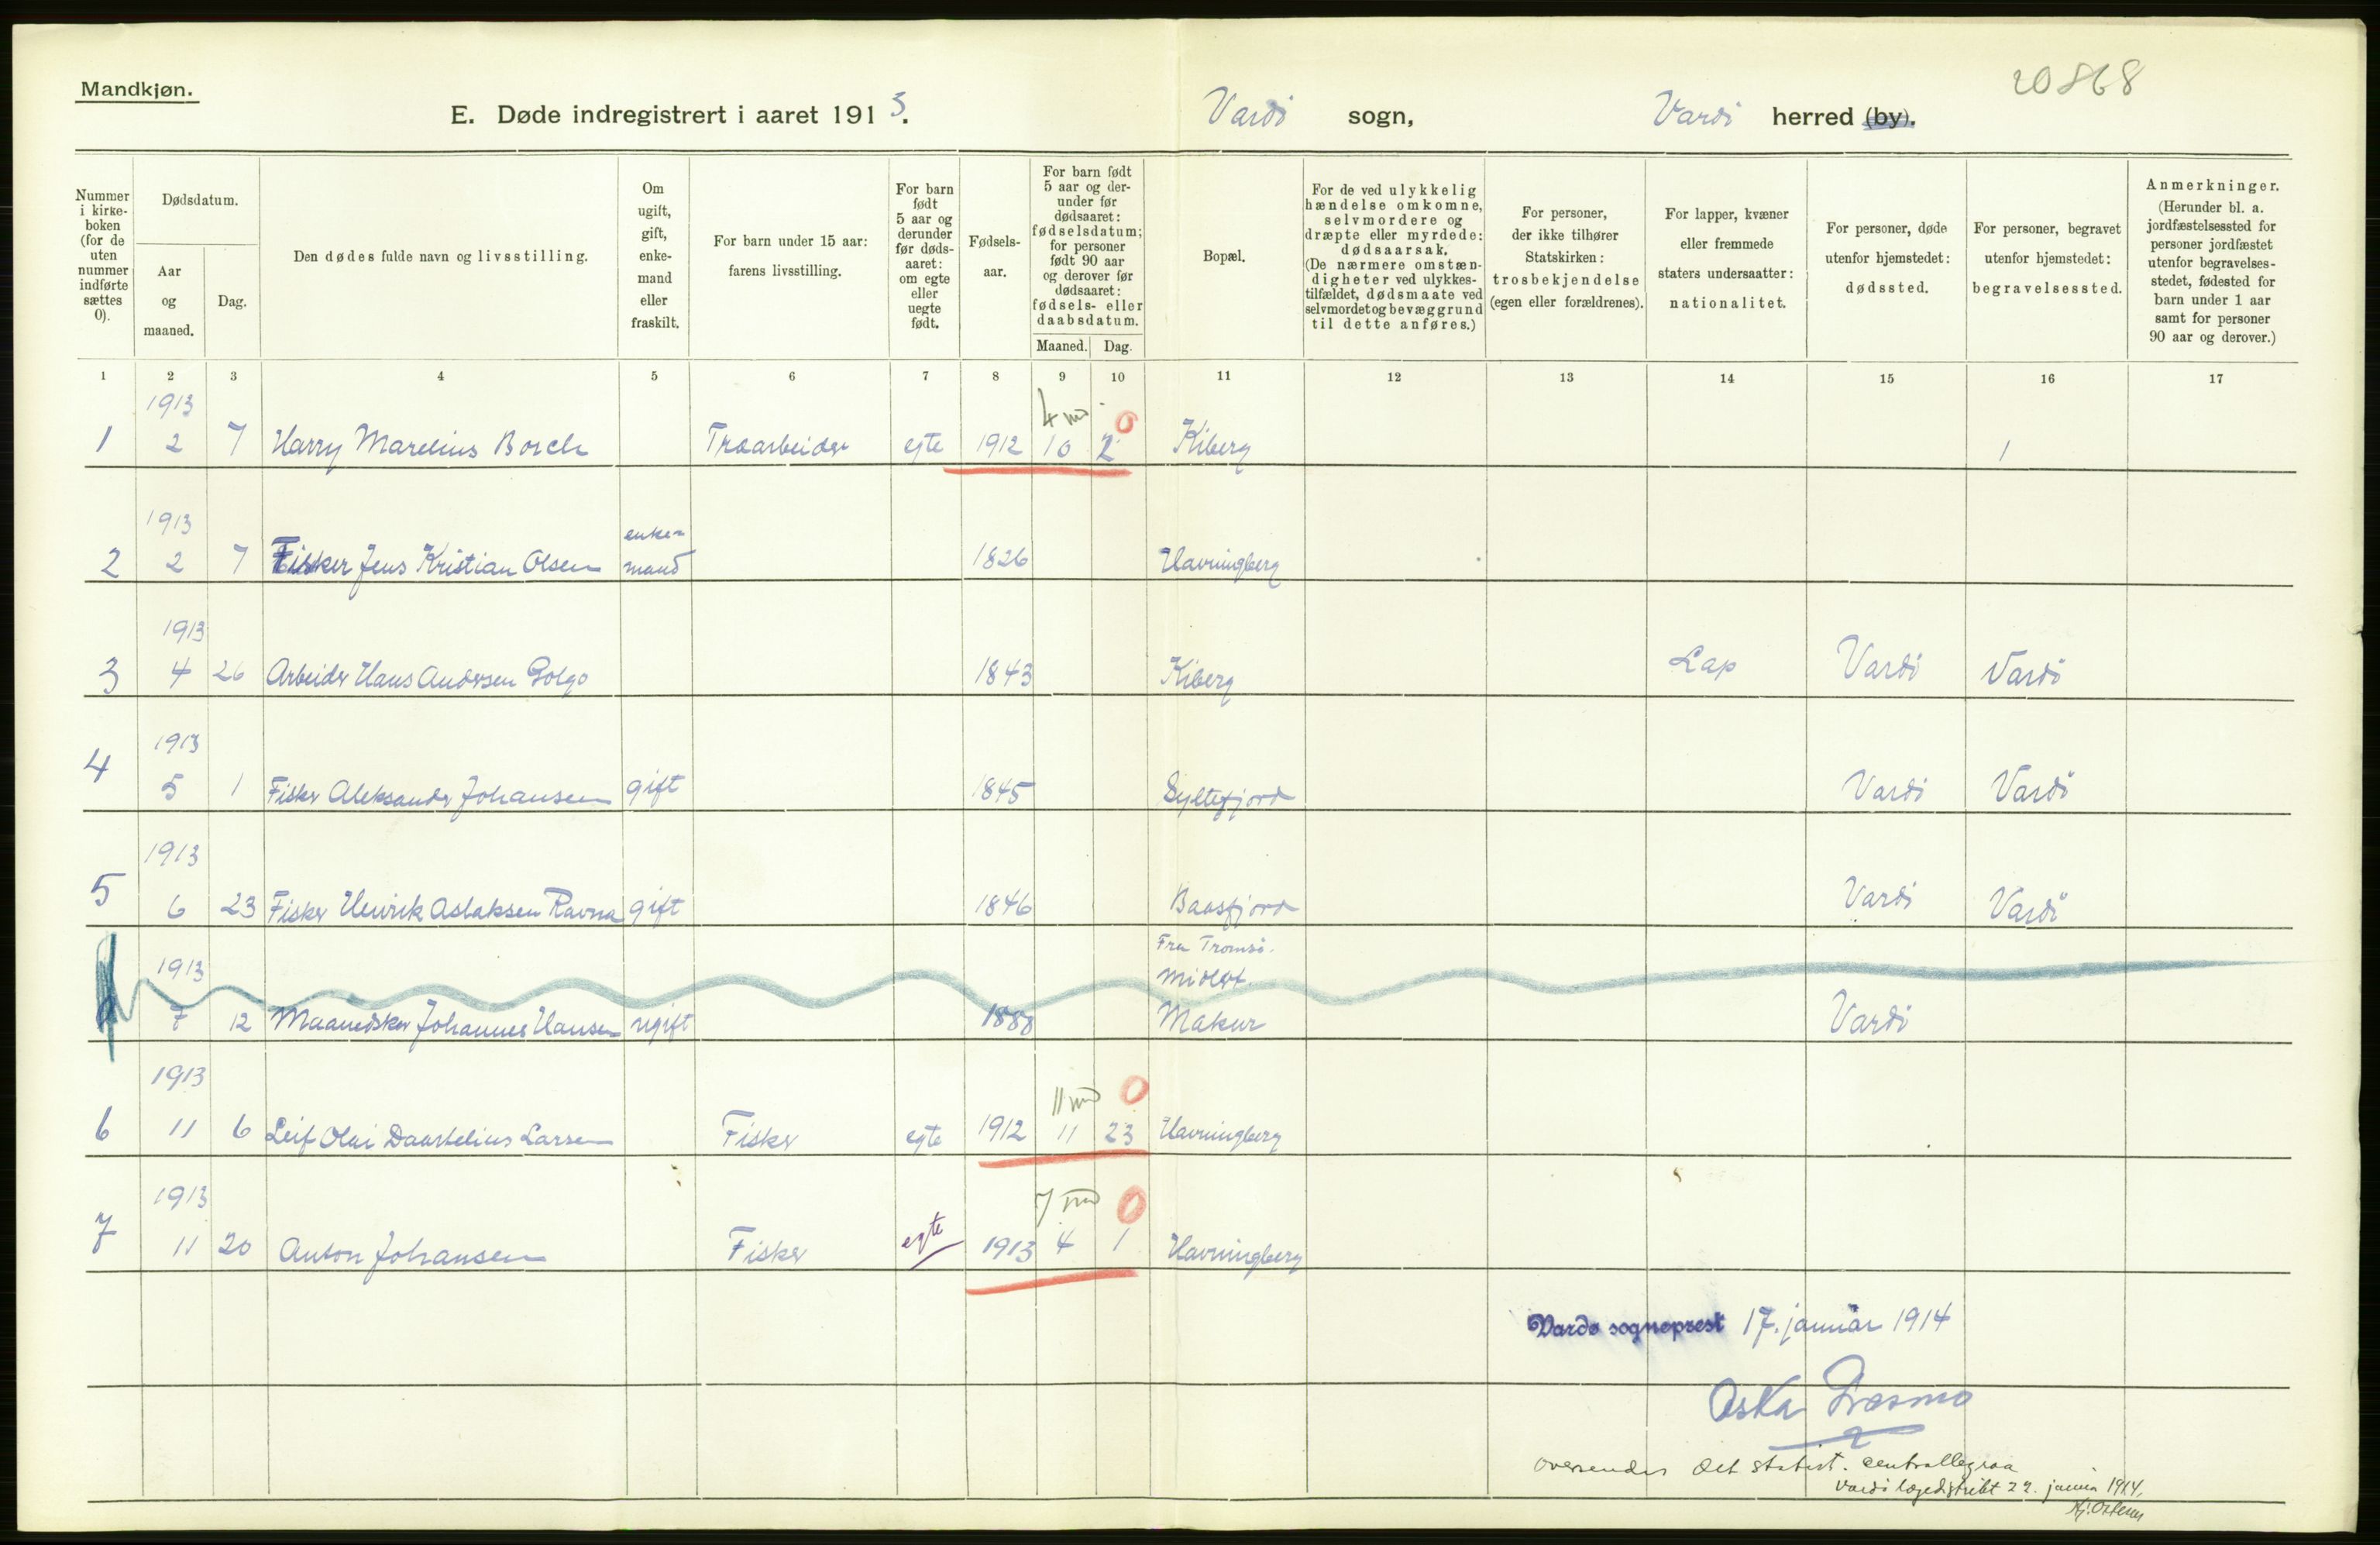 20868
Mandkjøn.
E. Døde indregistrert i aaret 1913. Vardö sogn, Vardö herred (by).
Nummer i kirke- boken (for de uten nummer indførte sættes 0).
Dødsdatum.
Aar og maaned.
Dag.
Den dødes fulde navn og livsstilling.
Om ugift, gift, enke- mand eller fraskilt.
For barn under 15 aar: farens livsstilling.
For barn født 5 aar og derunder før døds- aaret: om egte eller uegte født.
Fødsels- aar.
For barn født 5 aar og der- under før dødsaaret: fødselsdatum; for personer født 90 aar og derover før dødsaaret: fødsels- eller daabsdatum.
Maaned. Dag.
Bopæl.
For de ved ulykkelig hændelse omkomne, selvmordere og dræpte eller myrdede: dødsaarsak. (De nærmere omstæn- digheter ved ulykkes- tilfældet, dødsmaate ved selvmordet og bevæggrund til dette anføres.)
For personer, der ikke tilhører Statskirken: trosbekjendelse (egen eller forældrenes).
For lapper, kvæner eller fremmede staters undersaatter: nationalitet.
For personer, døde utenfor hjemstedet: dødssted.
For personer, begravet utenfor hjemstedet: begravelsessted.
Anmerkninger. (Herunder bl. a. jordfæstelsessted for personer jordfæstet utenfor begravelses- stedet, fødested for barn under 1 aar samt for personer 90 aar og derover.)
1 2 3 4 5 6 7 8 9 10 11 12 13 14 15 16 17
1913 4 md 0
1 2 7 Harry Marelius Borch Træarbeider egte 1912 10 2 Kiberg 1
1913 enke-
2 2 7 Fisker Jens Kristian Olsen mand 1826 Havningberg
1913
3 4 26 Arbeider Hans Andersen Golgo 1843 Kiberg Lap Vardö Vardö
1913
4 5 1 Fisker Aleksander Johansen gift 1845 Syltefjord Vardö Vardö
1913
5 6 23 Fisker Henrik Aslaksen Ravna gift 1846 Baasfjord Vardö Vardö
Fra Tromsö.
1913 Midlert.
7 12 Maanedsker Johannes Hansen ugift 1888 Makur Vardö
1913 11 md 0
6 11 6 Leif Olai Daartelius Larsen Fisker egte 1912 11 23 Havningberg
1913 7 md 0
7 11 20 Anton Johansen Fisker egte 1913 4 1 Havningberg
Vardø sogneprest 17. januar 1914
oversendes det statist. centralbyraa
Vardö lægedistrikt 22. januar 1914.